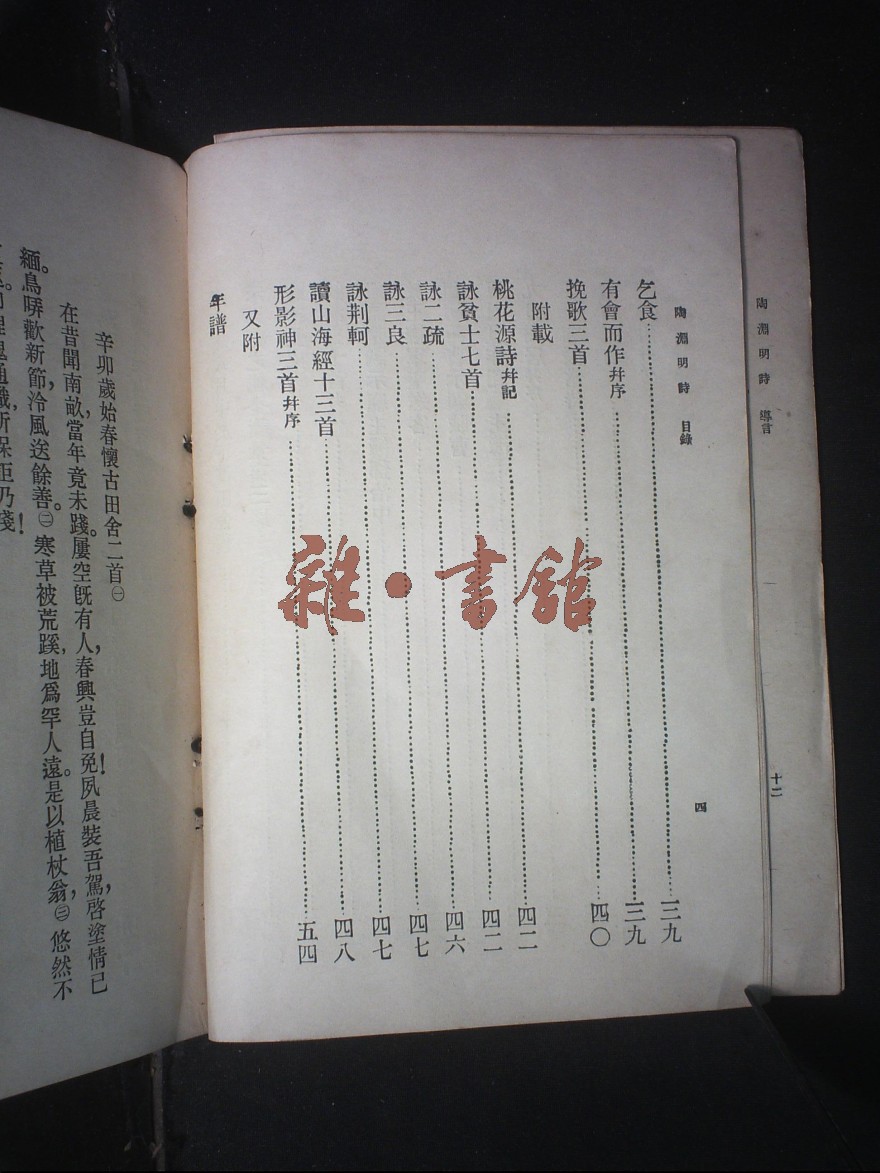 陶淵明詩 導言
十二
陶淵明詩 目錄
四
乞食……三九
有會而作并序……三九
挽歌三首……四〇
附載
桃花源詩并記……四二
詠貧士七首……四二
詠二疏……四六
詠三良……四七
詠荊軻……四七
讀山海經十三首……四八
形影神三首并序……五四
又附
年譜
雜·書館
辛卯歲始春懷古田舍二首㊀
在昔聞南畝,當年竟未踐。屢空既有人,春興豈自免!夙晨裝吾駕,啓塗情已
緬。鳥哢歡新節,泠風送餘善。㊁寒草被荒蹊,地爲罕人遠。是以植杖翁,㊂悠然不
理愧通識,所保詎乃淺!